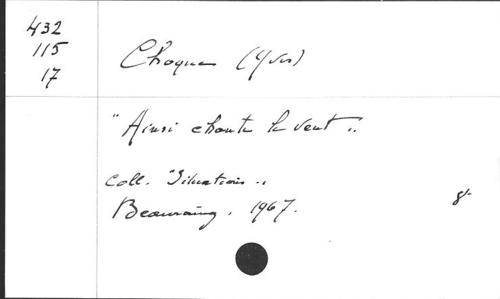 432
115
17
Choque (Yves)
"Ainsi chante le vent"
Coll. "Situations"
Beauraing. 1967.
8°